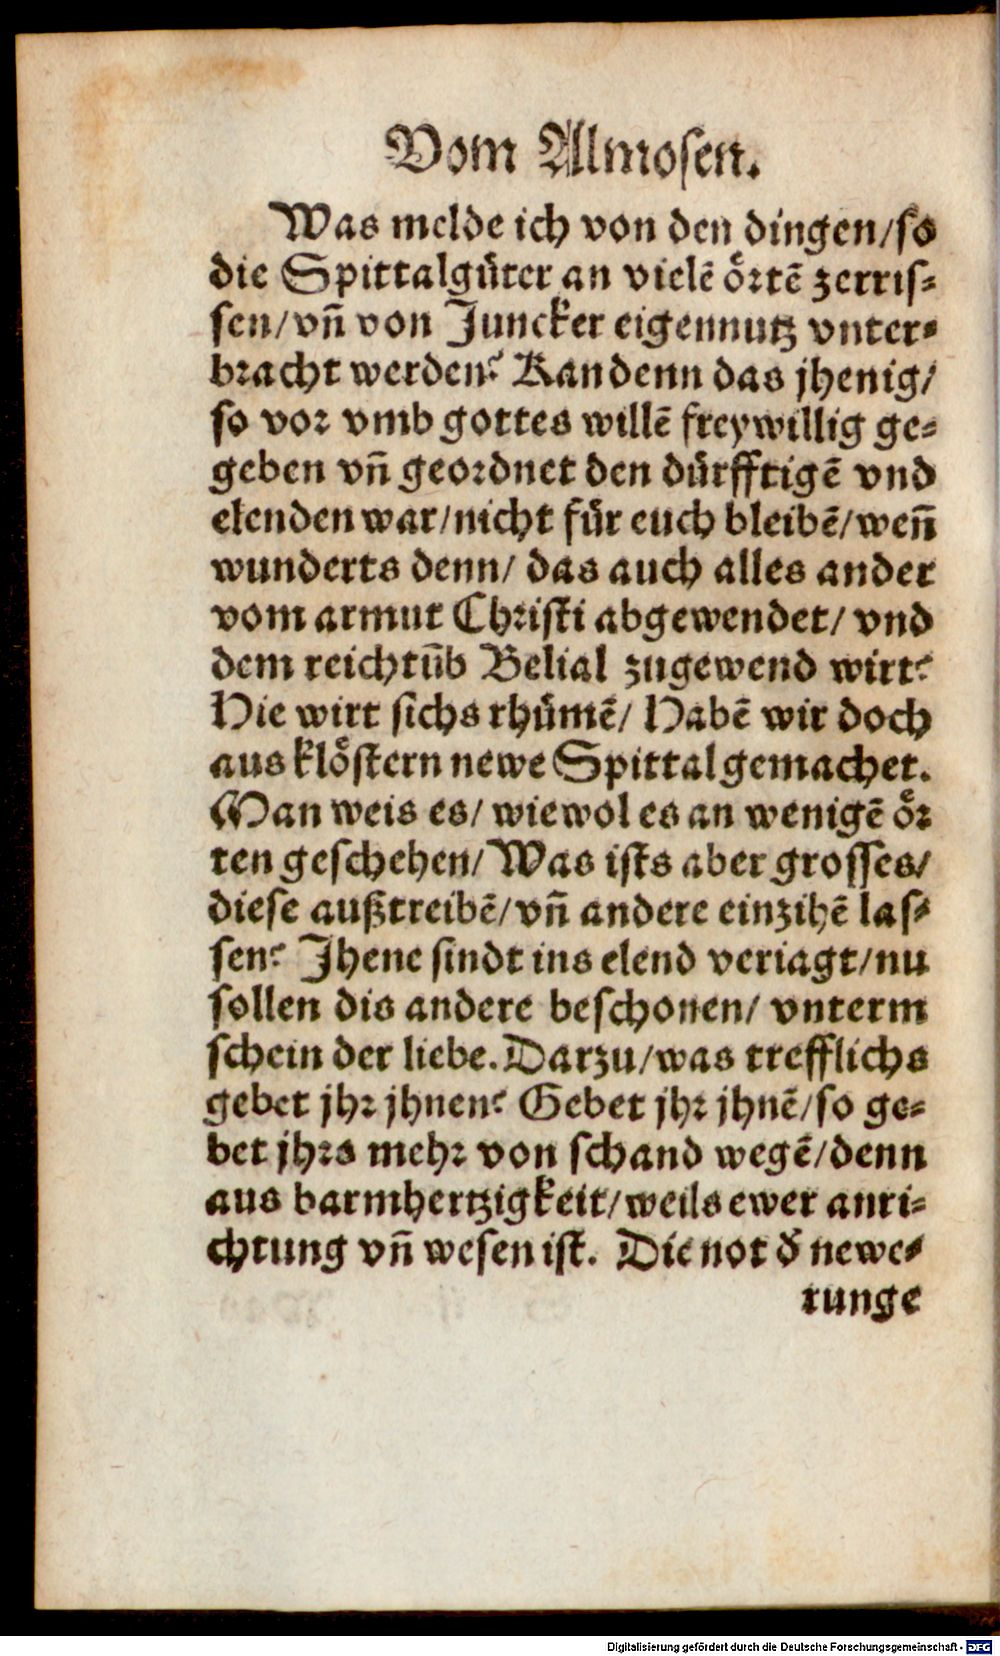 Vom Almosen.
Was melde ich von den dingen/so
die Spittalgüter an vielē örtē zerris-
sen/vñ von Juncker eigennutz vnter-
bracht werden? Kan denn das jhenig/
so vor vmb gottes willē freywillig ge-
geben vñ geordnet den dürfftigē vnd
elenden war/nicht für euch bleibē/weñ
wunderts denn/ das auch alles ander
vom armut Christi abgewendet/ vnd
dem reichtūb Belial zugewend wirt?
Hie wirt sichs rhümē/ Habē wir doch
aus klöstern newe Spittal gemachet.
Man weis es/ wiewol es an wenigē ör
ten geschehen/ Was ists aber grosses/
diese außtreibē/vñ andere einzihē las-
sen? Jhene sindt ins elend veriagt/nu
sollen dis andere beschonen/ vnterm
schein der liebe. Darzu/was trefflichs
gebet jhr jhnen? Gebet jhr jhnē/so ge-
bet jhrs mehr von schand wegē/denn
aus barmhertzigkeit/weils ewer anri-
chtung vñ wesen ist. Die not d̄ newe-
runge
Digitalisierung gefördert durch die Deutsche Forschungsgemeinschaft - DFG